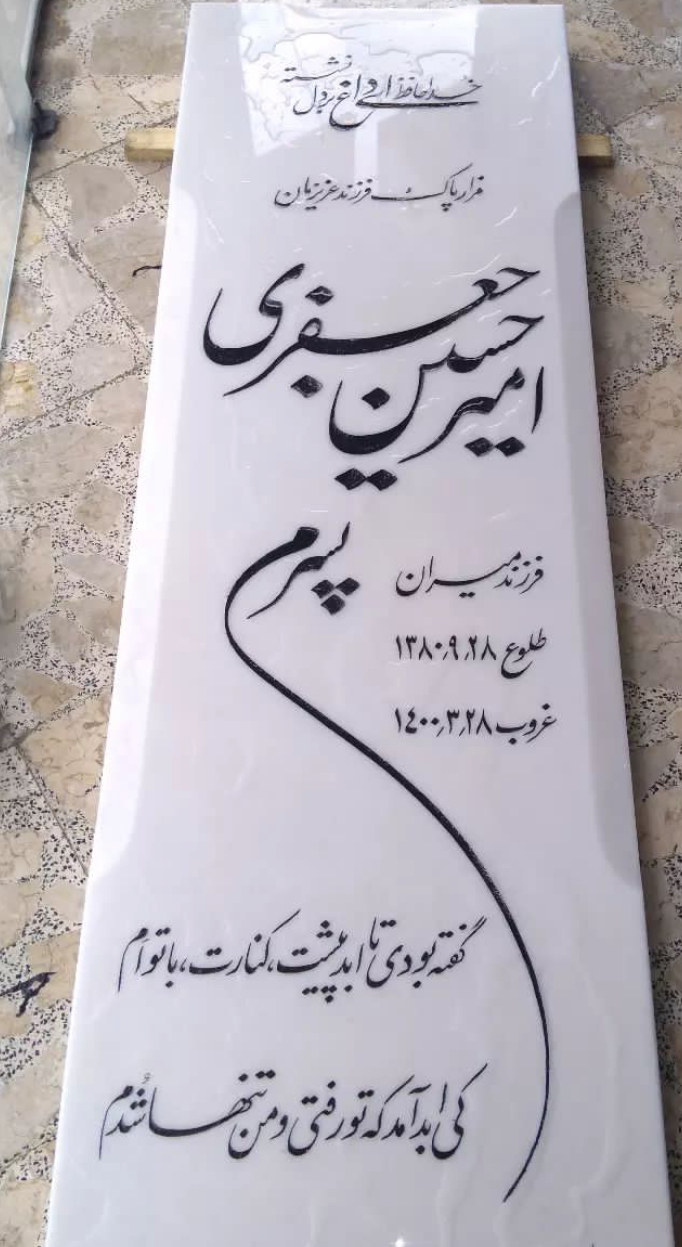 خداحافظ ای داغ بر دل نشسته
مزار پاک فرزند عزیزمان
امیرحسین جعفری
پسرم
فرزند میران
طلوع ۱۳۸۰,۹,۲۸
غروب ۱۴۰۰,۳,۲۸
گفته بودی تا ابد پیشت، کنارت، باتوأم
کی ابد آمد که تو رفتی و من تنها شدم